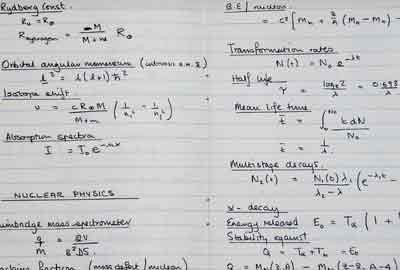 Rydberg const.
R₀ = R∞
R_hydrogen = M / (M + m) R∞
Orbital angular momentum (
l² = l(l+1)ħ²
Isotope shift.
ν = cR∞M / (M+m) (1/n₁² - 1/n₂²)
Absorption spectra
I = I₀e
NUCLEAR PHYSICS
mass spectrometer
q/M = 2V / B²DS
fraction (mass defect / nucleon)
B.E / nucleon
= c² [Mₙ + (Mₕ - Mₙ) -
Transformation rates.
N(t) = N₀ e^-λt
Half life
τ = log_e 2 / λ = 0.693 / λ
Mean life time
t̄ = ∫₀^N₀ t dN / N₀
t̄ = 1/λ
Multistage decays.
N₂(t) = N₁(0) λ₁ / (λ₂ - λ₁) (e^-λ₁t -
α - decay
Energy released E₀ = Tα (1 +
Stability against
Q = Tα + = E₀
Q = (Z,A) - (Z-2, A-4)